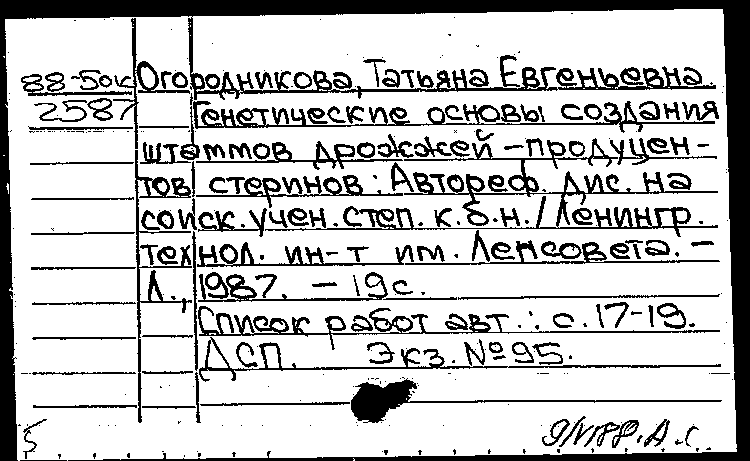 88-5ок Огородникова, Татьяна Евгеньевна.
2587 Генетические основы создания
штаммов дрожжей-продуцен-
тов стеринов: Автореф. дис. на
соиск. учен. степ. к.б.н. / Ленингр.
технол. ин-т им. Ленсовета. –
Л., 1987. – 19 с.
Список работ авт.: с. 17-19.
ДСП. Экз. № 95.
5
А.С.